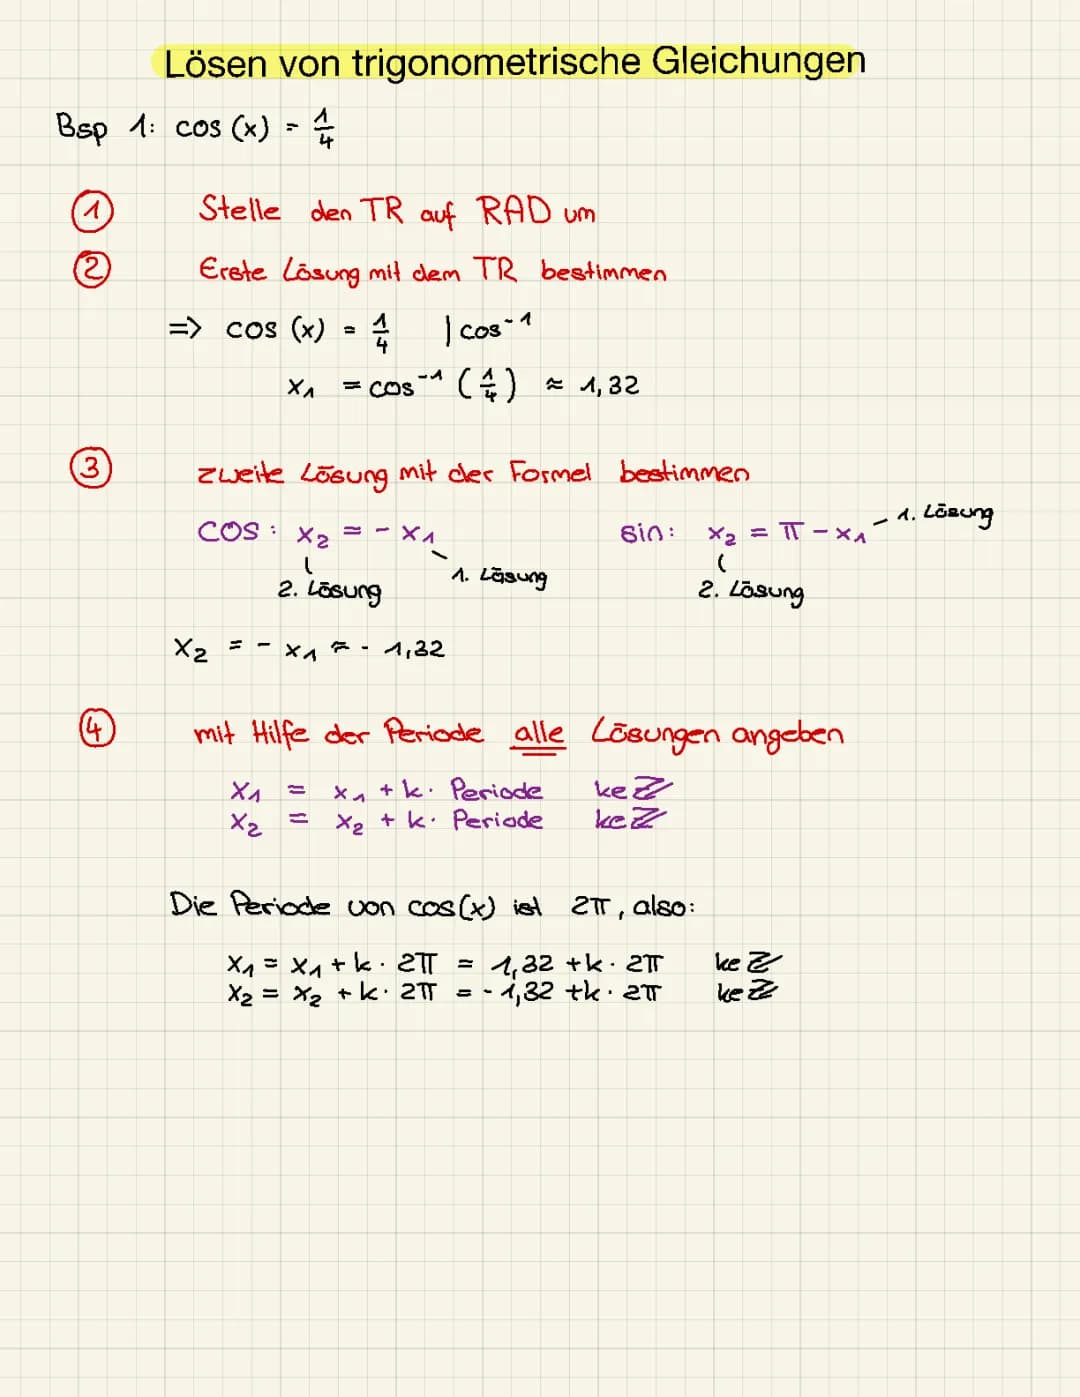 Lösen von trigonometrische Gleichungen
Bsp 1: cos (x) = 1/4
1 Stelle den TR auf RAD um
2 Erste Lösung mit dem TR bestimmen
=> cos (x) = 1/4 | cos⁻¹
x₁ = cos⁻¹ (1/4) ≈ 1,32
3 zweite Lösung mit der Formel bestimmen
COS: x₂ = - x₁ sin: x₂ = π - x₁ 1. Lösung
2. Lösung 1. Lösung 2. Lösung
x₂ = - x₁ ≈ - 1,32
4 mit Hilfe der Periode alle Lösungen angeben
x₁ = x₁ + k · Periode k∈ℤ
x₂ = x₂ + k · Periode k∈ℤ
Die Periode von cos(x) ist 2π, also:
x₁ = x₁ + k · 2π = 1,32 + k · 2π k∈ℤ
x₂ = x₂ + k · 2π = - 1,32 + k · 2π k∈ℤ